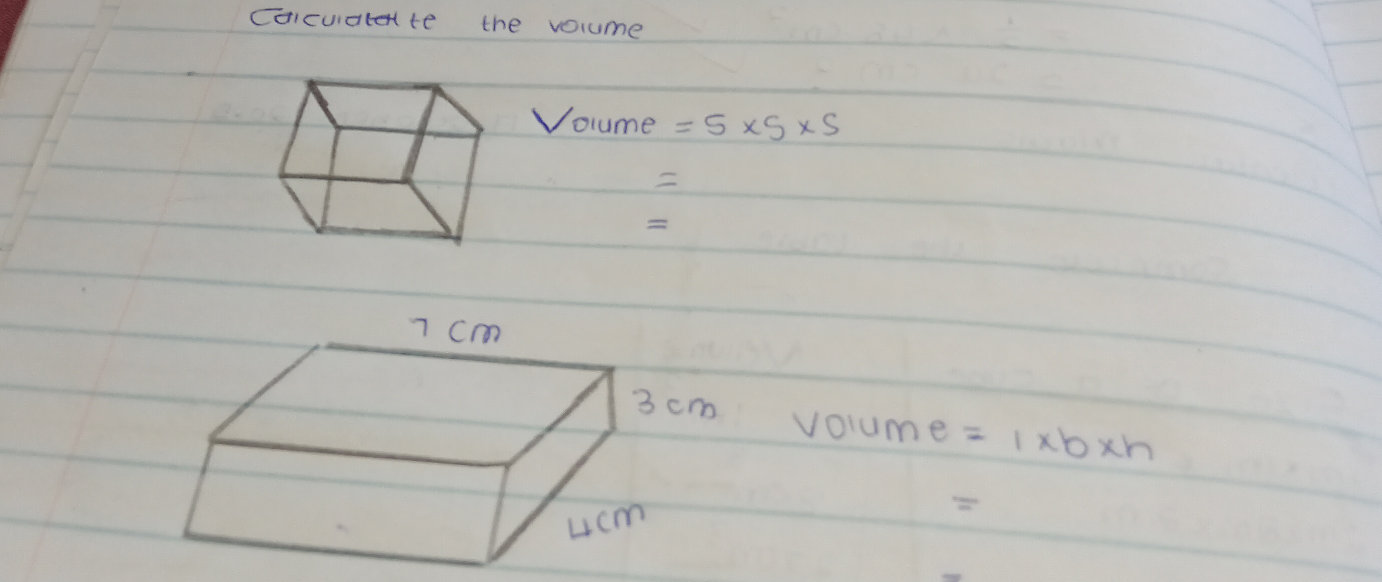 Calculate te the volume
Volume = S × S × S
=
=
7 cm
3 cm
Volume = l × b × h
=
4cm
=